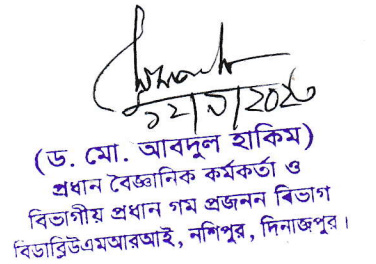 (ড. মো. আবদুল হাকিম)
প্রধান বৈজ্ঞানিক কর্মকর্তা ও
বিভাগীয় প্রধান গম প্রজনন বিভাগ
বিডাব্লিউএমআরআই, নশিপুর, দিনাজপুর।